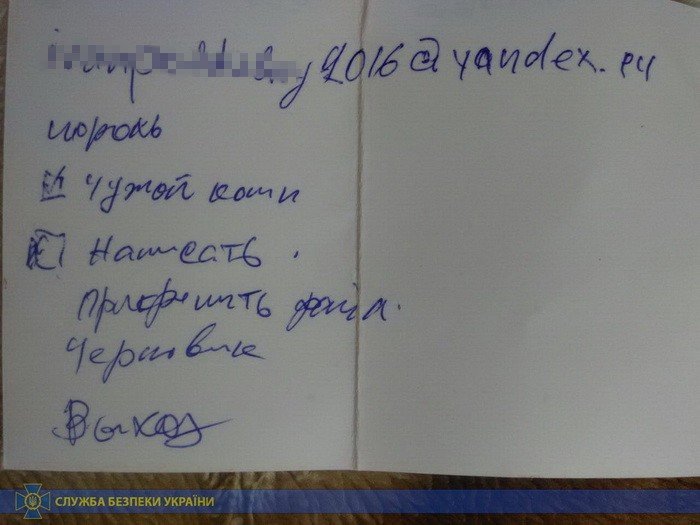 y2016@yandex.ru
пороль
чужой комп
Написать.
Прикрепить файл.
Черновик
Выход
СЛУЖБА БЕЗПЕКИ УКРАЇНИ